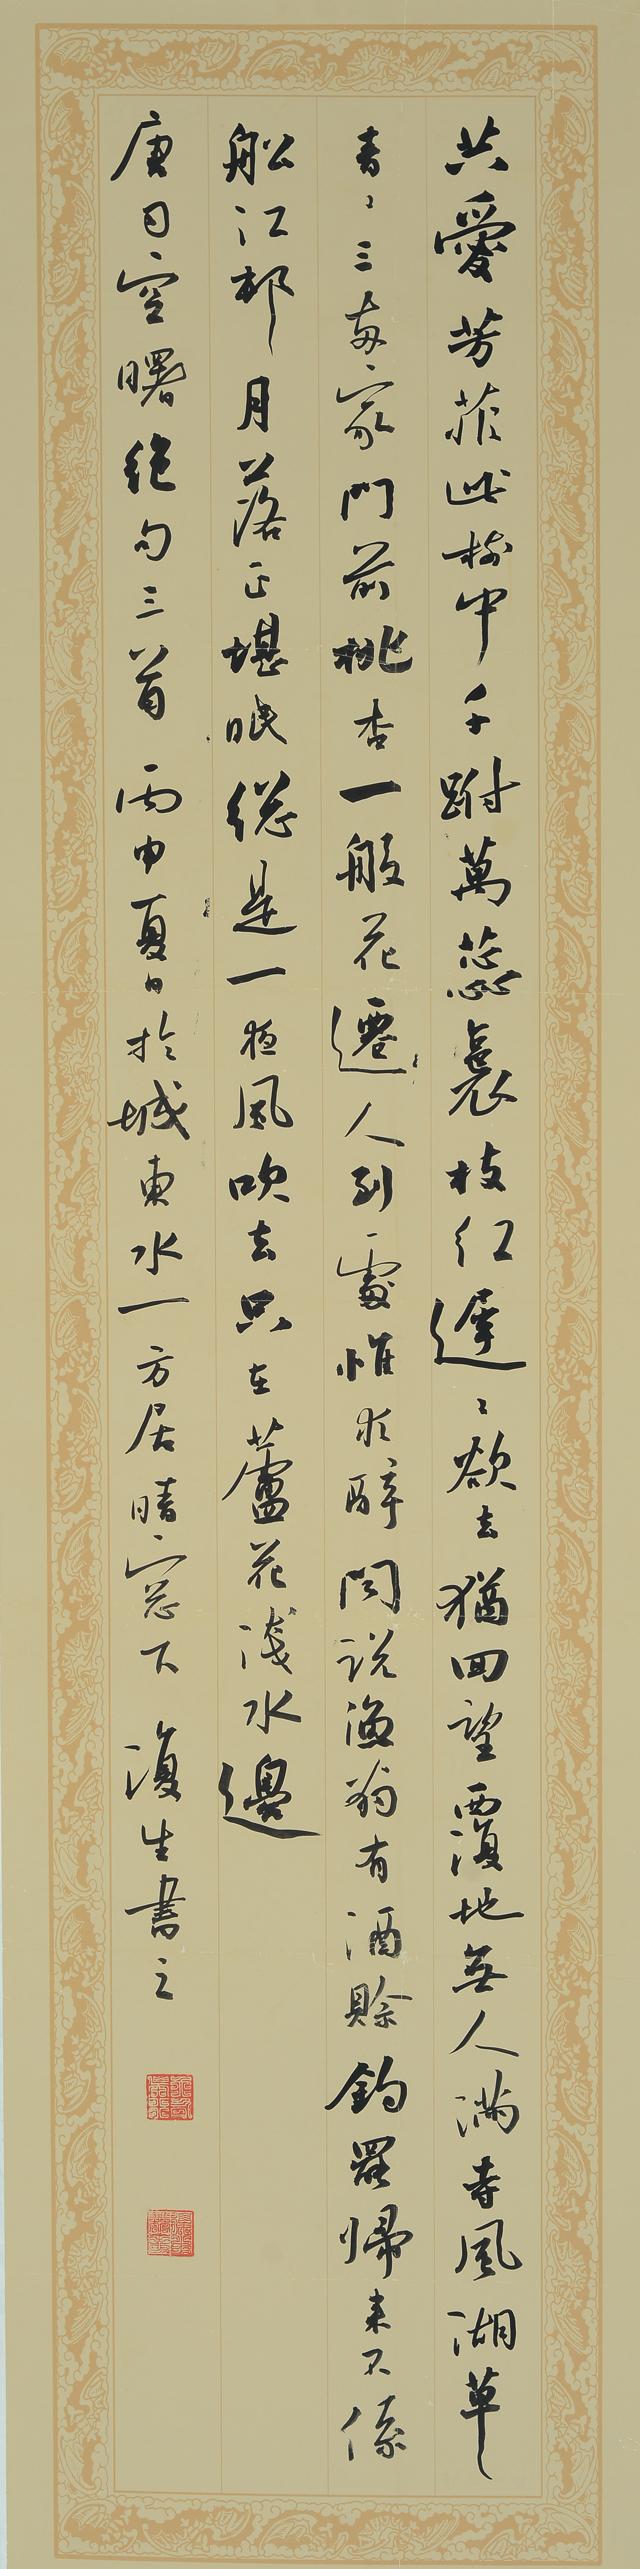 共愛芳菲此樹中千跗萬蕊裹枝紅遲〻欲去猶回望覆地無人滿寺風湖草
青〻三兩家門前桃杏一般花遷人到處惟求醉聞說漁翁有酒賒釣罷歸來不係
船江邨月落正堪眠總是一夜風吹去只在蘆花淺水邊
唐司空曙絕句三首 丙申夏日於城東水一方居晴窗下 復生書之